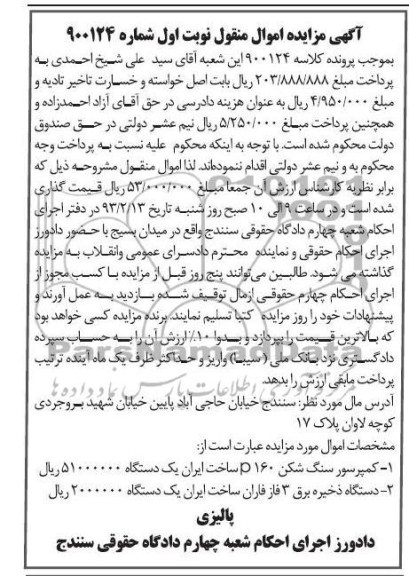 آگهی مزایده اموال منقول نوبت اول شماره ۹۰۰۱۲۴
بموجب پرونده کلاسه ۹۰۰۱۲۴ این شعبه آقای سید علی شیخ احمدی به
پرداخت مبلغ ۲۰۳/۸۸۸/۸۸۸ ریال بابت اصل خواسته و خسارت تاخیر تادیه و
مبلغ ۴/۹۵۰/۰۰۰ ریال به عنوان هزینه دادرسی در حق آقای آزاد احمدزاده و
همچنین پرداخت مبلغ ۵/۲۵۰/۰۰۰ ریال نیم عشر دولتی در حق صندوق
دولت محکوم شده است. با توجه به اینکه محکوم علیه نسبت به پرداخت وجه
محکوم به و نیم عشر دولتی اقدام ننموده‌اند. لذا اموال منقول مشروحه ذیل که
برابر نظریه کارشناس ارزش آن جمعا مبلغ ۵۳/۰۰۰/۰۰۰ ریال قیمت گذاری
شده است و در ساعت ۹ الی ۱۰ صبح روز شنبه تاریخ ۹۳/۲/۱۳ در دفتر اجرای
احکام شعبه چهارم دادگاه حقوقی سنندج واقع در میدان بسیج با حضور دادورز
اجرای احکام حقوقی و نماینده محترم دادسرای عمومی وانقلاب به مزایده
گذاشته می شود. طالبین می‌توانند پنج روز قبل از مزایده با کسب مجوز از
اجرای احکام چهارم حقوقی ازمال توقیف شده بازدید به عمل آورند و
پیشنهادات خود را روز مزایده کتبا تسلیم نمایند. برنده مزایده کسی خواهد بود
که بالاترین قیمت را بپردازد و بدوا ۱۰٪ ارزش آن را به حساب سپرده
دادگستری نزد بانک ملی (سیبا) واریز و حداکثر ظرف یک ماه آینده ترتیب
پرداخت مابقی ارزش را بدهد.
آدرس مال مورد نظر: سنندج خیابان حاجی آباد پایین خیابان شهید بروجردی
کوچه لاوان پلاک ۱۷
مشخصات اموال مورد مزایده عبارت است از:
۱- کمپرسور سنگ شکن ۱۶۰ p ساخت ایران یک دستگاه ۵۱۰۰۰۰۰۰ ریال
۲- دستگاه ذخیره برق ۳ فاز فاران ساخت ایران یک دستگاه ۲۰۰۰۰۰۰ ریال
پالیزی
دادورز اجرای احکام شعبه چهارم دادگاه حقوقی سنندج